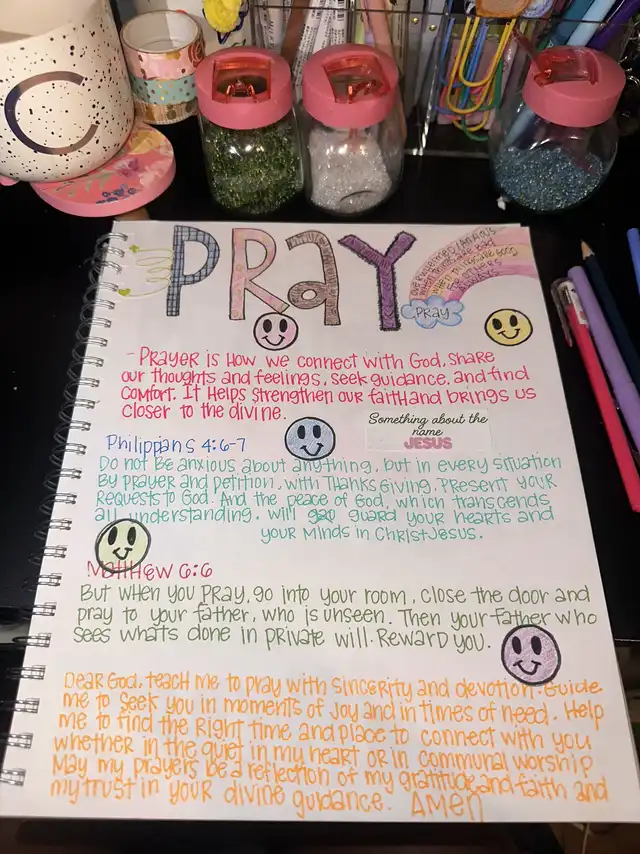 C
PRaY
WHEN THINGS ARE BAD
WHEN THINGS ARE GOOD
FOR OTHERS
PRAY
- PRayer is How we connect with God, share
our thoughts and feelings, seek guidance, and find
comfort. It Helps strengthen our faith and brings us
closer to the divine.
Something about the
name
JESUS
Philippians 4:6-7
Do not Be anxious about anything, but in every situation
By prayer and petition, with Thanks Giving, Present your
Requests to God. And the peace of God, which transcends
all understanding, will guard your hearts and
your Minds in Christ Jesus.
Matthew 6:6
But when you PRay, go into your room, close the door and
pray to your father, who is unseen. Then your Father who
sees whats done in private will Reward you.
Dear God, teach me to pray with sincerity and devotion. Guide
me to seek you in moments of Joy and in times of need. Help
me to find the Right time and place to connect with you
whether in the quiet in my heart or in communal worship
May my prayers be a reflection of my gratitude and faith and
my trust in your divine guidance. Amen